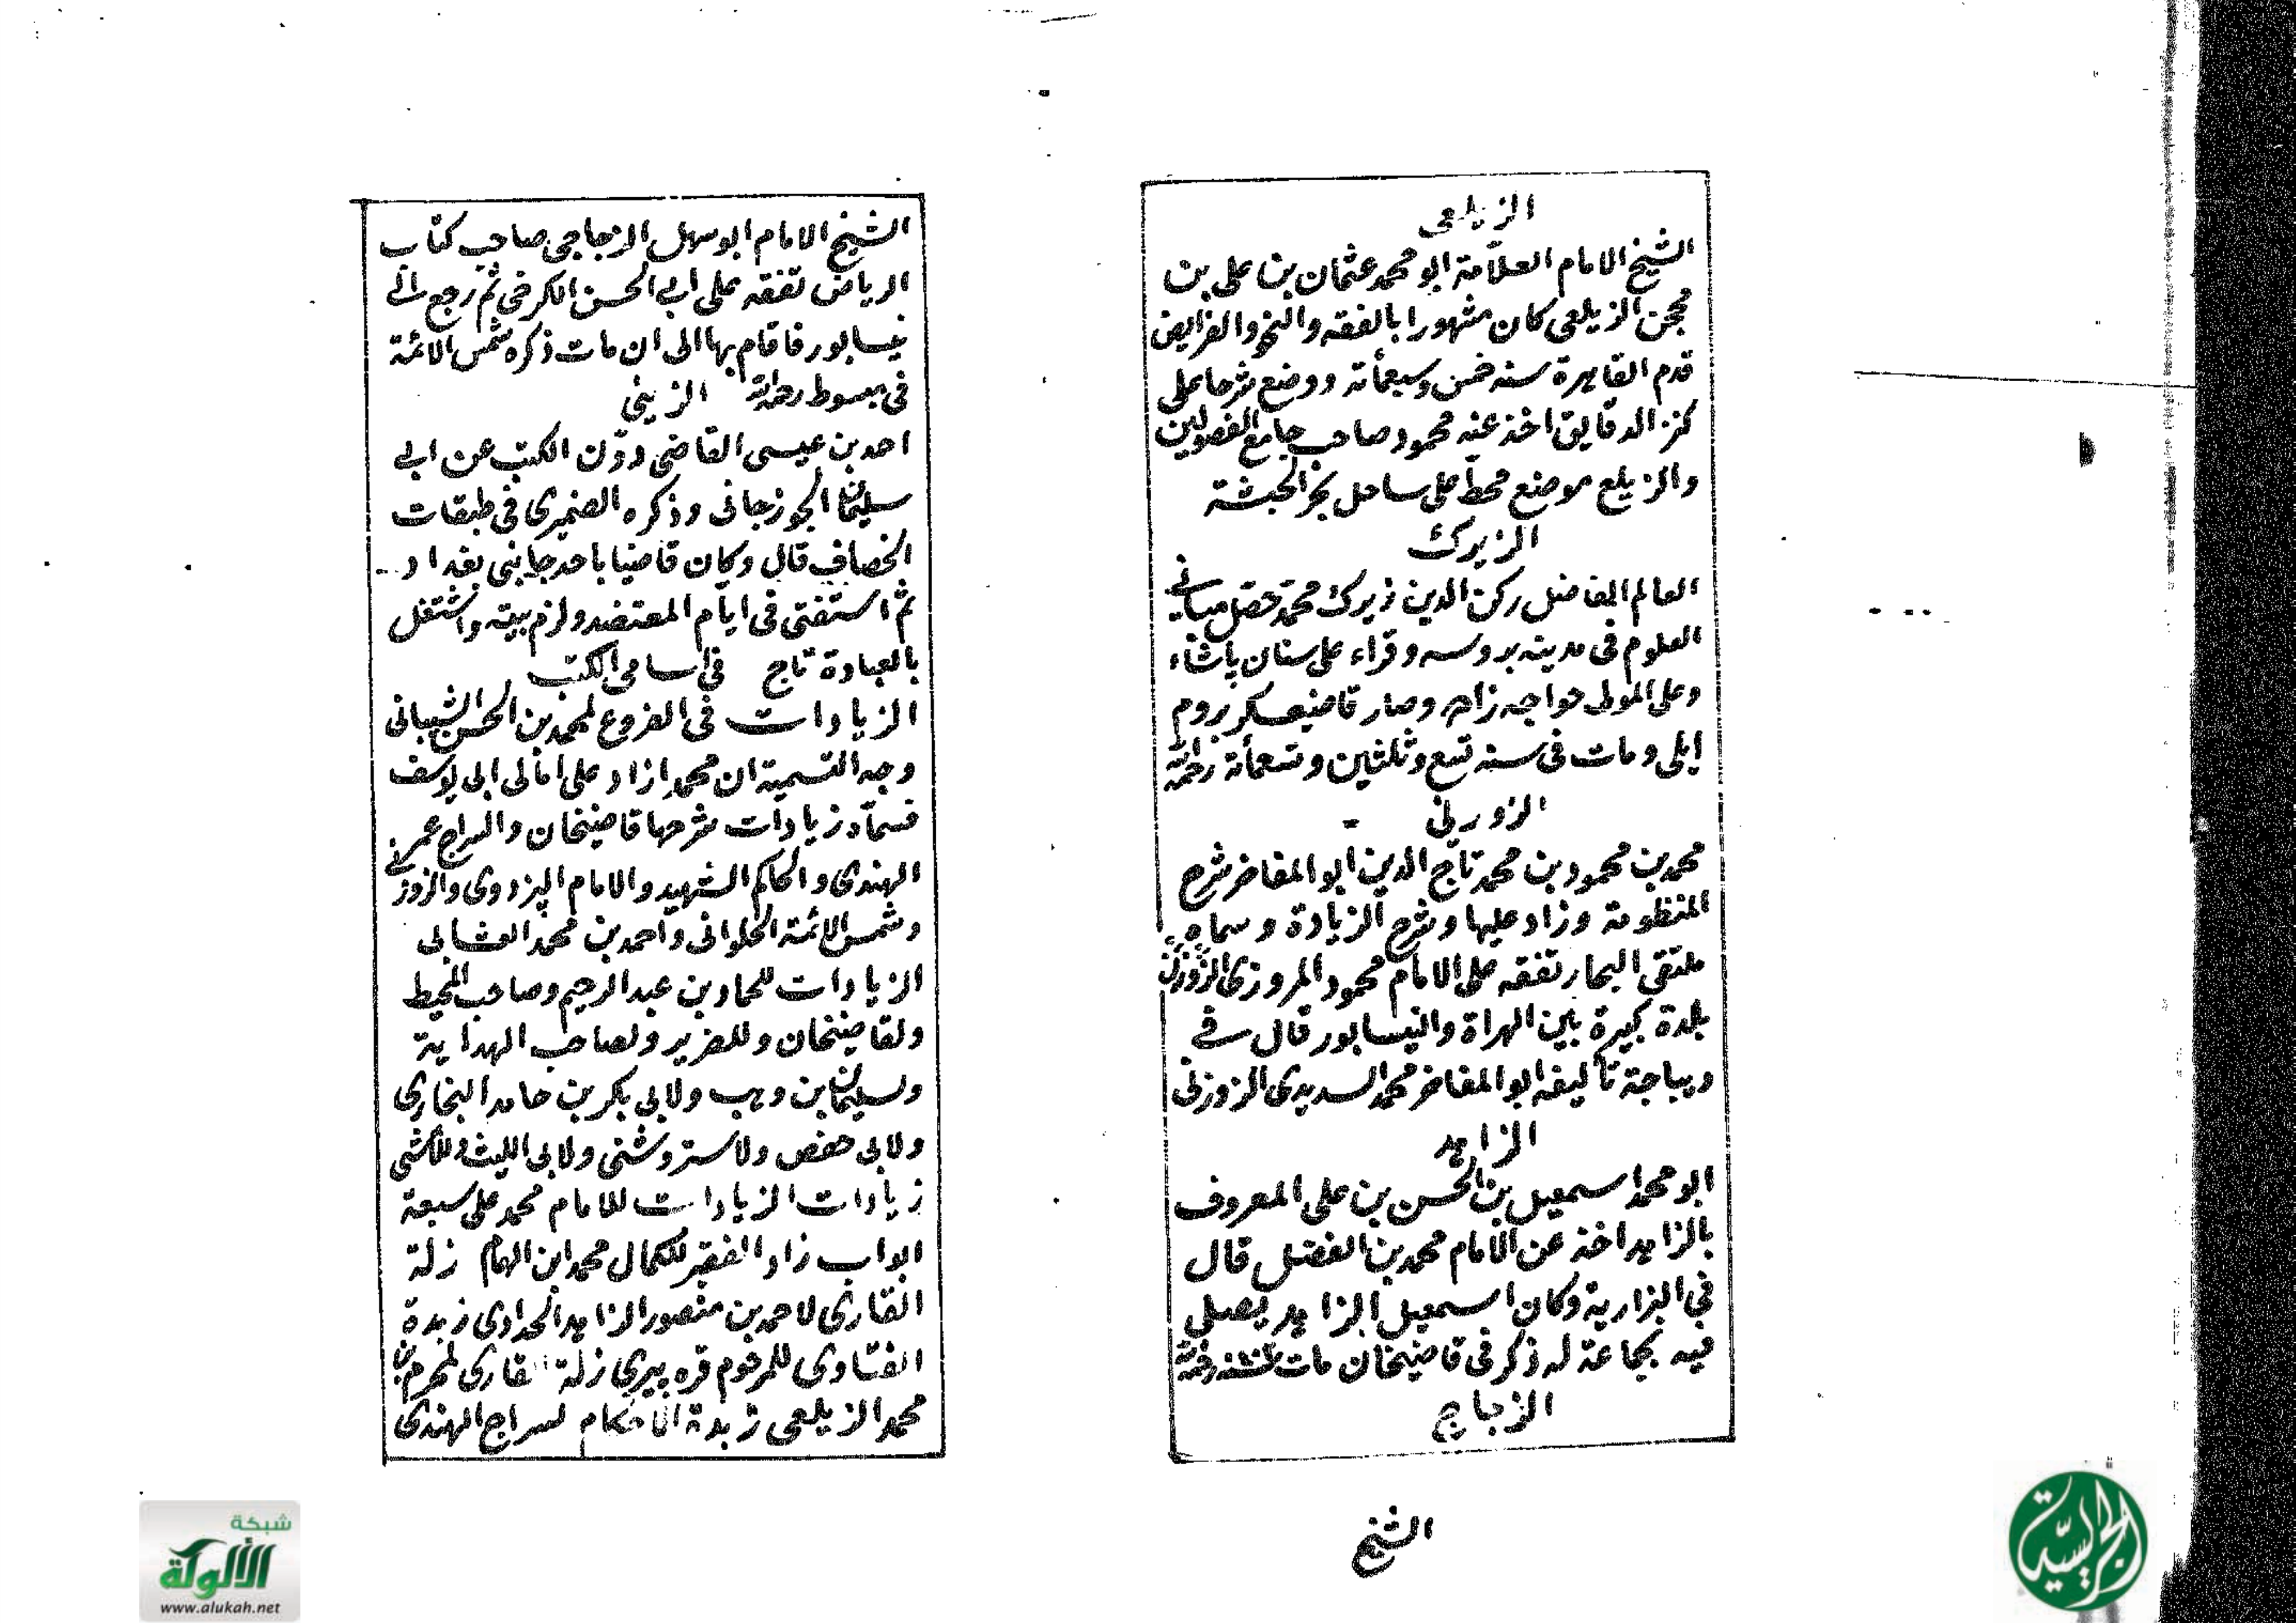 الزيلعى
الشيخ الامام العلامة ابو محمد عثمان بن على بن
محجن الزيلعى كان مشهورا بالفقه والنحو والفرايض
قدم القاهرة سنه خمس وسبعمأته ووضع شرحا على
كنز الدقايق اخذ عنه محمود صاحب جامع الفصولين
والزيلع موضع محط على ساحل بحر الحبشة
الزيرك
العالم الفاضل ركن الدين زيرك محمد حصل مبانى
العلوم فى مدينه بروسه وقراء على سنان پاشاء
وعلى المولى خواجه زاده وصار قاضيعسكر بروم
ايلى ومات فى سنه تسع وثلثين وتسعمأئة رحمه الله
الزورنى
محمد بن محمود بن محمد تاج الدين ابو المفاخر شرح
المنظومة وزاد عليها وشرح الزيادة وسماه
ملتقى البحار تفقه على الامام محمود المروزى الزوزن
بلدة كبيرة بين الهراة والنيسابور قال فى
ديباجة تأليفه ابو المفاخر محمد السديدى الزوزنى
الزاهد
ابو محمد اسمعيل بن الحسن بن على المعروف
بالزاهد اخذ عن الامام محمد بن الفضل قال
فى البزارية وكان اسمعيل الزاهد يصلى
فيه بجماعة له ذكر فى قاضيخان مات
الزجاج
الشيخ
الشيخ الامام ابو سهل الزجاجى صاحب كتاب
الرياض تفقه على ابى الحسن الكرخى ثم رجع الى
نيسابور فاقام بها الى ان مات ذكره شمس الائمة
فى مبسوط رحمه الله الزينى
احمد بن عيسى القاضى دوّن الكتب عن ابى
سليمان الجوزجانى وذكره الضميرى فى طبقات
الخصاف قال وكان قاضيا باحد جانبى بغداد
ثم استفتى فى ايام المعتضد ولزم بيته واشتغل
بالعبادة تاج فى اسامى الكتب
الزيادات فى الفروع لمحمد بن الحسن الشيبانى
وجه التسمية ان محمدا زاد على امالى ابى يوسف
فسماه زيادات شرحها قاضيخان والسراج عمر
الهندى والحاكم الشهيد والامام البزدوى والزوزنى
وشمس الائمة الحلوانى واحمد بن محمد العتابى
الزيادات للحماد بن عبد الرحيم وصاحب المحيط
ولقاضيخان وللضرير ولصاحب الهداية
ولسليمان بن وهب ولابى بكر بن حامد البخارى
ولابى حفص ولاستروشنى ولابى الليث وللكشى
زيادات الزيادات للامام محمد على سبعة
ابواب زاد الفقير للكمال محمد ابن الهمام زلة
القارى لاحمد بن منصور الزاهد الحدادى زبدة
الفتاوى للمرحوم قره پيرى زلة القارى لمحرم بن
محمد الزيلعى زبدة الاحكام لسراج الهندى
شبكة
الألوكة
www.alukah.net